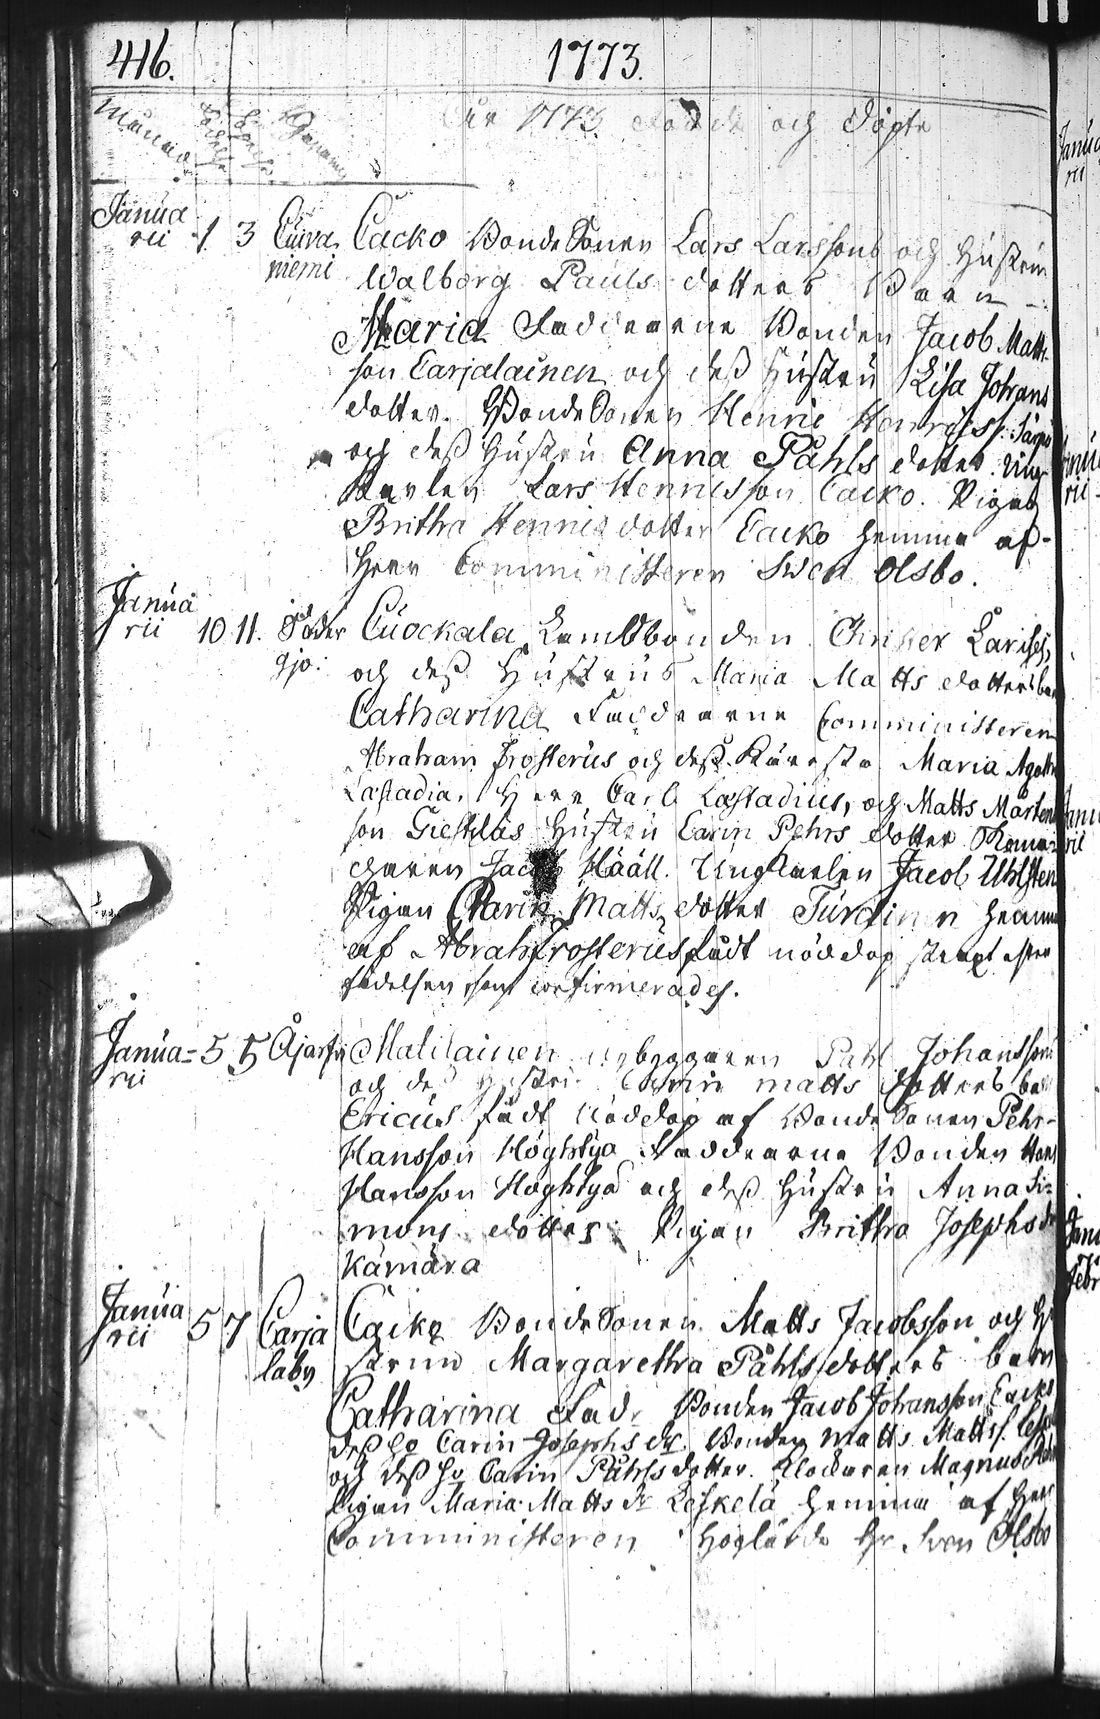 416.
1773.
Månad
Åhr 1773 Födde och döpte
Janua
rii 1 3 Cuiva
niemi
Cacko Bonde Sonen Lars Larssons och Hustrun
Walborg Pauls dotters Barn
Maria Faddrarne Bonden Jacob Matts
son Carjalainen och dess Hustru Lisa Johans
dotter. Bonde Sonen Henric Henrics s.
och dess Hustru Anna Påhls dotter. Ung
Karlen Lars Henricsson Cacko. Pigan
Britha Henrics dotter Cacko hemma af
Herr Comministeren Swen Olsbo.
Janua
rii 10 11.
Cuockala Landbonden Christer Larises,
och dess Hustrus Maria Matts dotters
Catharina Faddrarne Comministeren
Abraham Frosterus och dess Käresta Maria
Læstadia. Herr Carl Læstadius, och Matts Mårtens
son Giestilas Hustru Carin Pehrs dotter
Jacob Hääll. Ungkarlen Jacob Uhlsten
Pigan Carin Matts dotter hemma
af Abrah Frosterus fådt nöddop strax efter
födelsen, som confirmerades.
Janua=
rii 5 5
Matilainen nybyggaren Pahl Johanssons
och dess Hustru Carin Matts dotters
Ericus fådt Nöddop af Bonde Sonen Pehr
Hansson Höghtya Faddrarne Bonden Hans
Hansson Höghtya och dess Hustru Anna Si=
mons dotter. Pigan Britha Josephs dr
Kämärä
Janua
rii 5 7 Carja
laby
Cacko Bonde Sonen Matts Jacobsson och Hu
struns Margaretha Påhls dotters barn
Catharina Fadr Bonden Jacob Johansson Cacko
dess Ho Carin Josephs dr. Bonden Matts Matts s.
och dess ho Carin Påhls dotter. Klockaren Magnus
Pigan Maria Matts dr Leskelä hemma af Herr
Comministeren Höglärde Hr Sven Olsbo